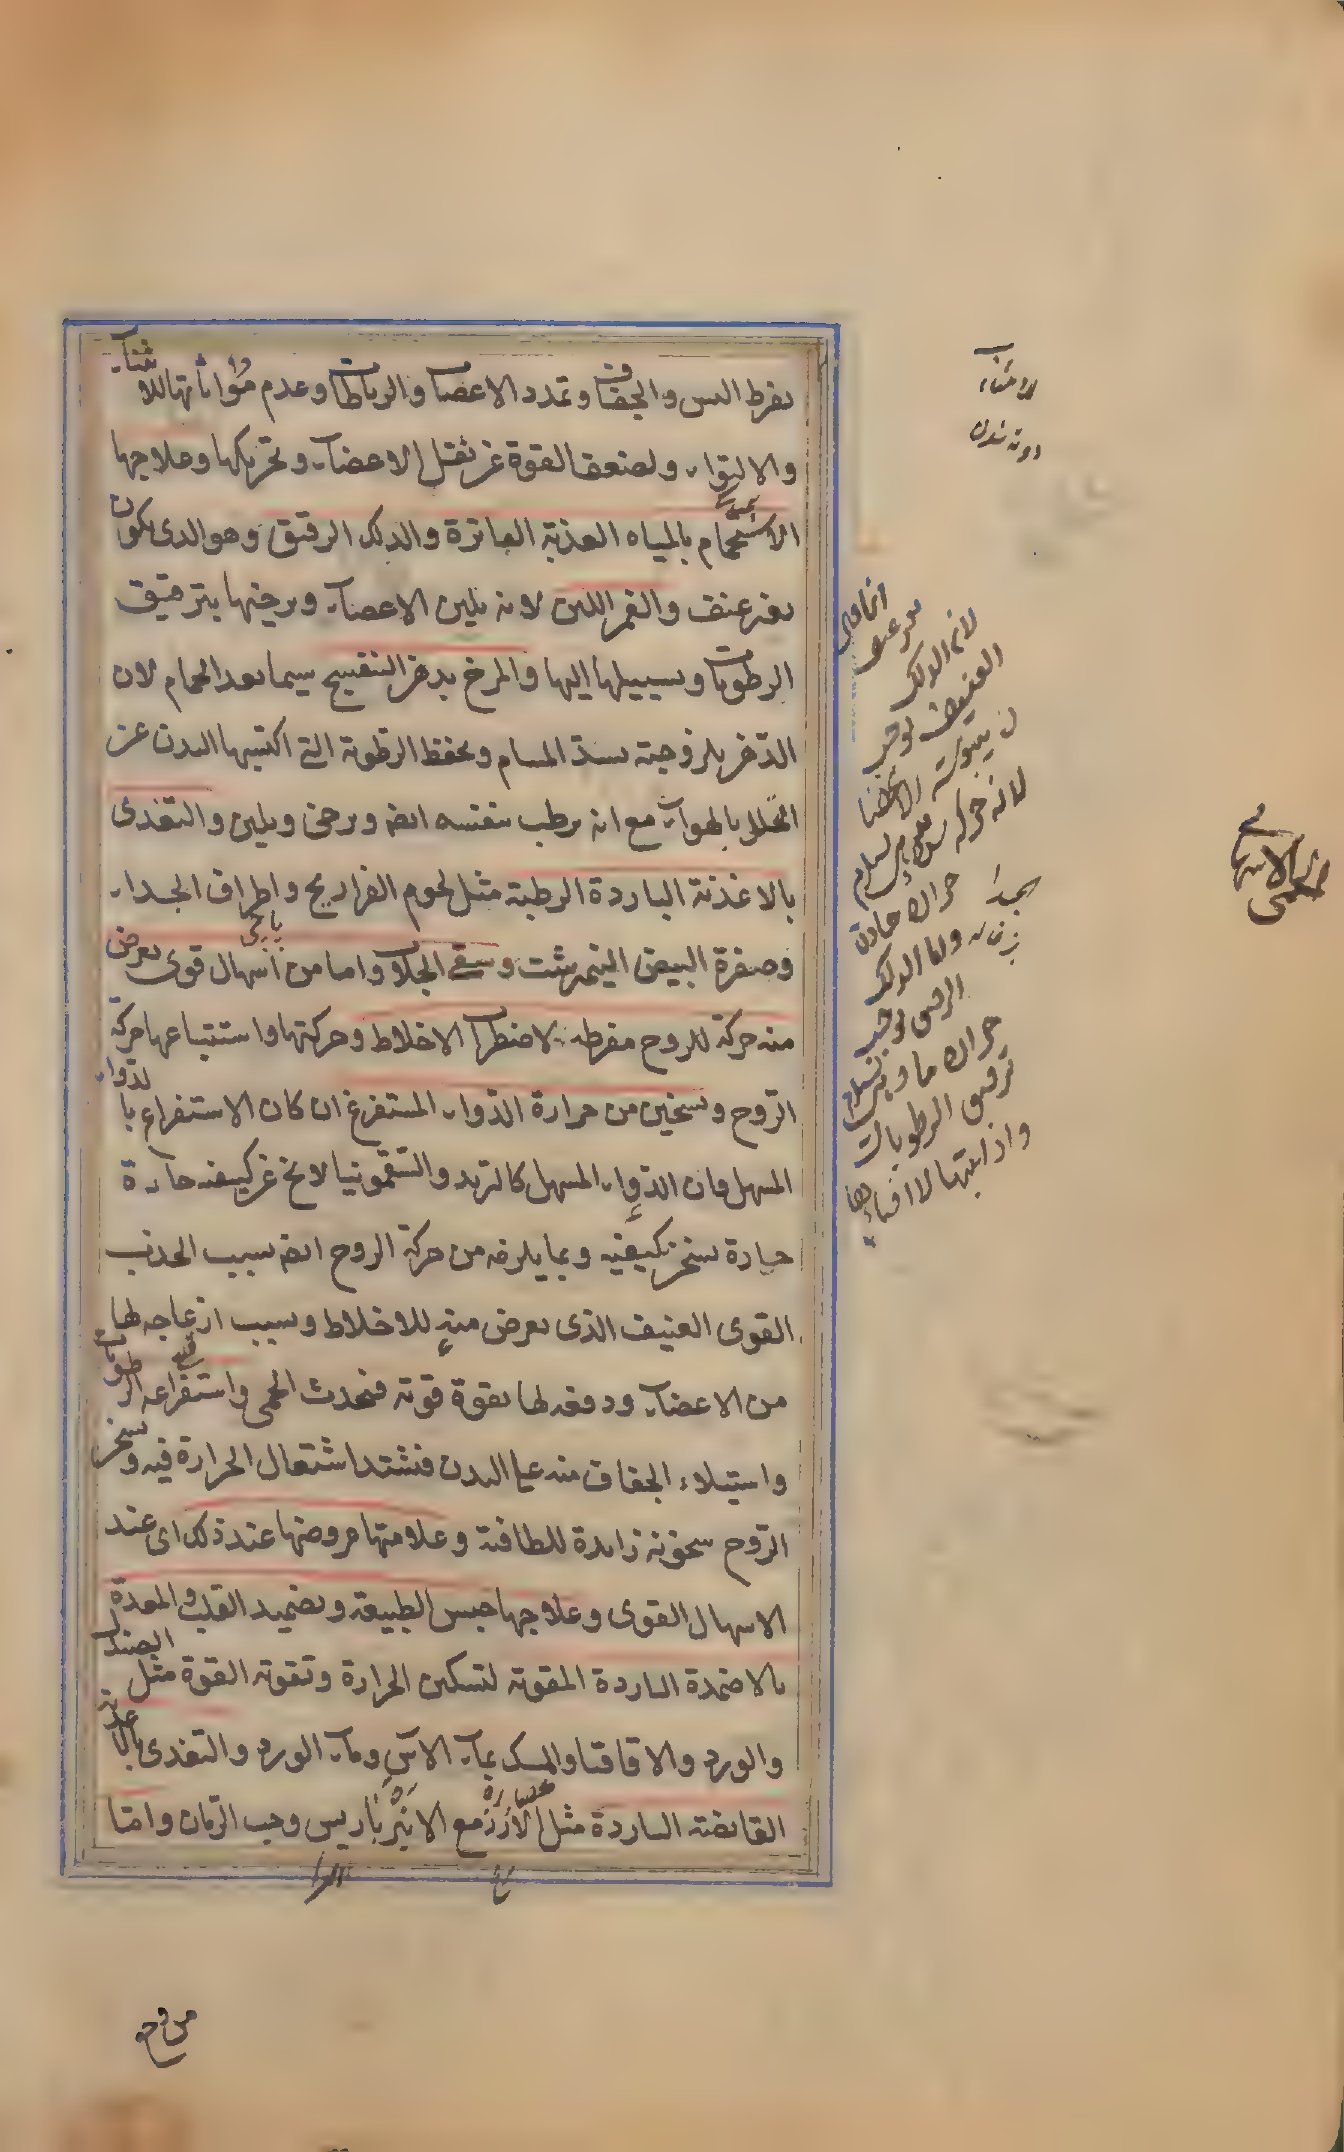 بفرط اليبس والجفاف وتمدد الاعصاب والرباطات وعدم مؤاتاتها للانثناء
والالتواء ولضعف القوة عن ثقل الاعضاء وتحريكها وعلاجها
الاستحمام بالمياه العذبة الفاترة والدلك الرقيق وهو الذى يكون
بغير عنف والغمز اللين لانه يلين الاعضاء ويرخيها بترقيق
الرطوبات وتسييلها اليها والمرخ بدهن البنفسج سيما بعد الحمام لان
الدهن بلزوجته يسد المسام ويحفظ الرطوبة التى اكتسبها البدن عن
التحلل بالهواء مع انه يرطب بنفسه ايضه ويرخى ويلين والتغذى
بالاغذية الباردة الرطبة مثل لحوم الفراريج واطراف الجداء
وصفرة البيض النيمرشت وسقى الجلاب واما من اسهال قوى يعرض
منه حركة للروح مفرطه لاضطراب الاخلاط وحركتها واستتباعها حركة
الروح وتسخين من حرارة الدواء المستفرغ ان كان الاستفراغ بالدواء
المسهل فان الدواء المسهل كالتربد والسقمونيا لا يخ عن كيفيه حادة
حادة يسخن بكيفيته وبما يلزمه من حركة الروح ايضه بسبب الجذب
القوى العنيف الذى يعرض منه للاخلاط وبسبب ازعاجه لها
من الاعضاء ودفعه لها بقوة قوته فيحدث الحمى واستفراغه الرطوبات
واستيلاء الجفاف منه على البدن فيشتد اشتعال الحرارة فيه ويسخن
الروح سخونه زايدة للطافته وعلامتها عروضها عند ذلك اى عند
الاسهال القوى وعلاجها حبس الطبيعة وتضميد القلب والمعدة
بالاضمدة الباردة المقويه لتسكين الحرارة وتقويه القوة مثل الصندل
والورد والاقاقيا والمسك بماء الاس وماء الورد والتغذى بالاغذية
القابضة الباردة مثل الارز مع الانبرباريس وحب الرمان واما
للانثناء
دوته شدن
لان الدلك
العنيف يوجب
يبوسته الاعضا
لانه حركة
واما الدلك
الرقيق يوجب
ترقيق الرطوبات
واذابتها لا افناءها
الحمى الاسهالى